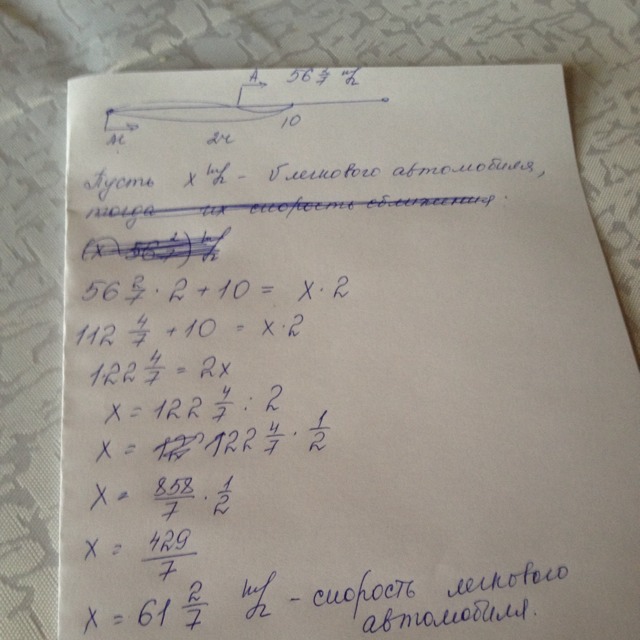 А. 56 2/7 км/ч
2ч 10
Пусть x км/ч - V легкового автомобиля,
тогда их скорость сближения:
(x - 56 2/7) км/ч
56 2/7 · 2 + 10 = x · 2
112 4/7 + 10 = x · 2
122 4/7 = 2x
x = 122 4/7 : 2
x = 122 4/7 · 1/2
x = 858/7 · 1/2
x = 429/7
x = 61 2/7 км/ч - скорость легкового
автомобиля.